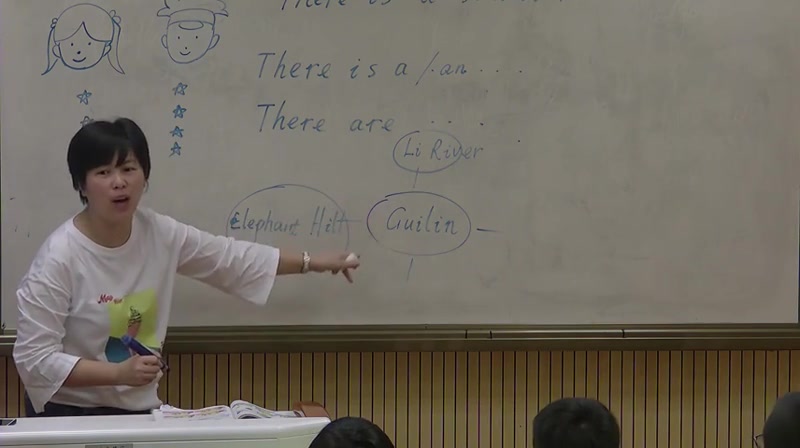 There is a
There is a / an ....
There are ....
Li River
Elephant Hill
Guilin